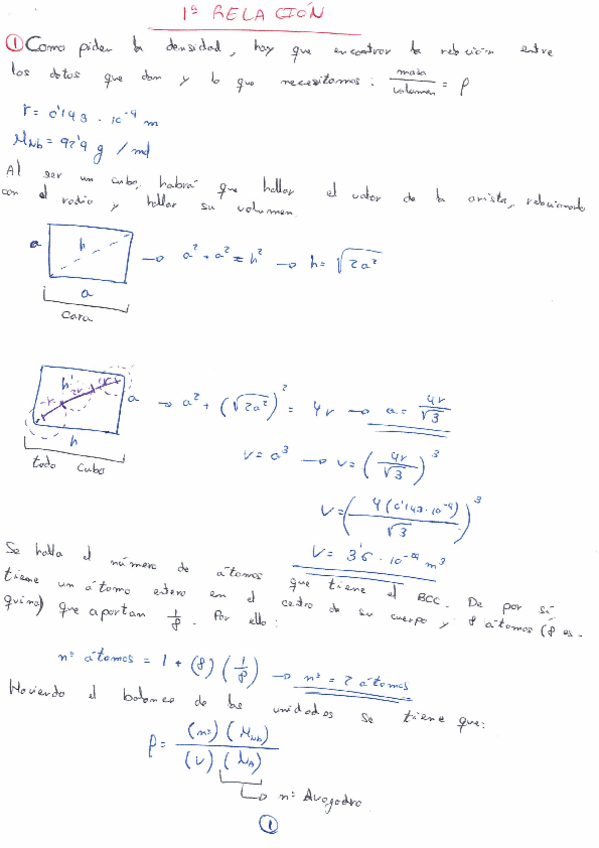 1ª RELACIÓN
① Como piden la densidad, hay que encontrar la relación entre
los datos que dan y lo que necesitamos: masa/volumen = ρ
r = 0'143 · 10⁻⁹ m
M_Nb = 92'9 g /mol
Al ser un cubo, habrá que hallar el valor de la arista, relacionarlo
con el radio y hallar su volumen.
a h → a² + a² = h² → h = √2a²
a
cara
h' r 2r r a → a² + (√2a²)² = 4r → a = 4r/√3
h
todo cubo
V = a³ → V = (4r/√3)³
V = (4(0'143·10⁻⁹)/√3)³
V = 3'6 · 10⁻²⁹ m³
Se halla el número de átomos que tiene el BCC. De por sí
tiene un átomo entero en el centro de su cuerpo y 8 átomos (8 es-
quina) que aportan 1/8. Por ello:
nº átomos = 1 + (8)(1/8) → nº = 2 átomos
Haciendo el balance de las unidades se tiene que:
ρ = (nº)(M_Nb)/(V)(N_A)
→ nº Avogadro
①